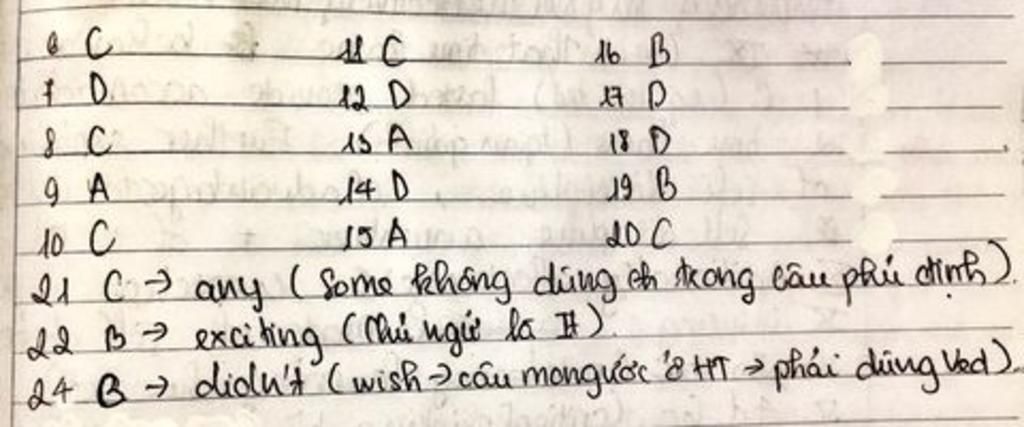 6 C 11 C 16 B
7 D 12 D 17 D
8 C 13 A 18 D
9 A 14 D 19 B
10 C 15 A 20 C
21 C → any (Some không dùng trong câu phủ định).
22 B → exciting (Chủ ngữ là It).
24 B → didn't (wish → câu mong ước ở HT → phải dùng Ved).